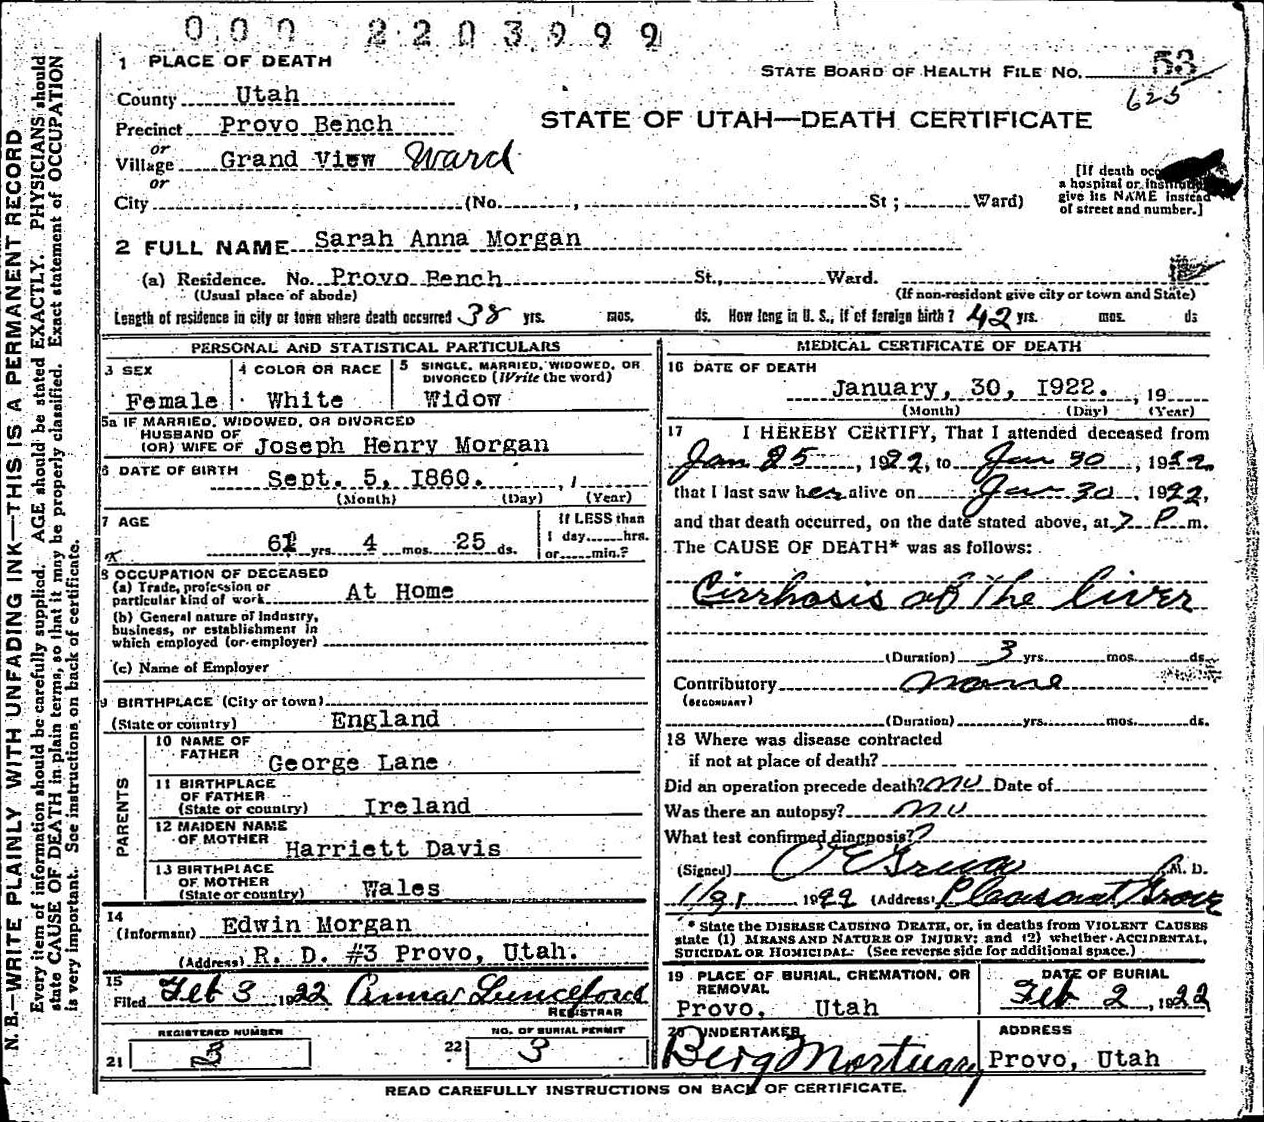 000 2203999
1 PLACE OF DEATH
STATE BOARD OF HEALTH FILE NO. 53
625
County Utah
STATE OF UTAH—DEATH CERTIFICATE
Precinct Provo Bench
or
Village Grand View Ward
or
[If death
a hospital or
give its NAME instead
of street and number.]
City (No. , St ; Ward)
2 FULL NAME Sarah Anna Morgan
(a) Residence. No. Provo Bench St., Ward.
(Usual place of abode) (If non-resident give city or town and State)
Length of residence in city or town where death occurred 38 yrs. mos. ds. How long in U. S., if of foreign birth? 42 yrs. mos. ds
PERSONAL AND STATISTICAL PARTICULARS
3 SEX
Female
4 COLOR OR RACE
White
5 SINGLE, MARRIED, WIDOWED, OR
DIVORCED (Write the word)
Widow
5a IF MARRIED, WIDOWED, OR DIVORCED
HUSBAND OF
(OR) WIFE OF Joseph Henry Morgan
6 DATE OF BIRTH
Sept. 5, 1860.
(Month) (Day) (Year)
7 AGE
If LESS than
1 day hrs.
or min.?
yrs. 4 mos. 25 ds.
8 OCCUPATION OF DECEASED
(a) Trade, profession or
particular kind of work At Home
(b) General nature of Industry,
business, or establishment in
which employed (or employer)
(c) Name of Employer
9 BIRTHPLACE (City or town)
(State or country) England
PARENTS
10 NAME OF
FATHER George Lane
11 BIRTHPLACE
OF FATHER
(State or country) Ireland
12 MAIDEN NAME
OF MOTHER Harriett Davis
13 BIRTHPLACE
OF MOTHER
(State or country) Wales
14
(Informant) Edwin Morgan
(Address) R. D. #3 Provo, Utah.
15
Filed Feb 3, 1922 Lunceford
REGISTRAR
REGISTERED NUMBER
21 3
NO. OF BURIAL PERMIT
22 3
MEDICAL CERTIFICATE OF DEATH
16 DATE OF DEATH
January, 30, 1922. , 19
(Month) (Day) (Year)
17 I HEREBY CERTIFY, That I attended deceased from
Jan 25, 1922, to Jan 30, 1922.
that I last saw her alive on Jan 30, 1922,
and that death occurred, on the date stated above, at 7 P m.
The CAUSE OF DEATH* was as follows:
Cirrhosis of The liver
(Duration) 3 yrs. mos. ds.
Contributory None
(SECONDARY)
(Duration) yrs. mos. ds.
18 Where was disease contracted
if not at place of death?
Did an operation precede death? no Date of
Was there an autopsy? no
What test confirmed diagnosis?
(Signed) M. D.
1/31 1922 (Address) Pleasant Grove
* State the DISEASE CAUSING DEATH, or, in deaths from VIOLENT CAUSES
state (1) MEANS AND NATURE OF INJURY; and (2) whether ACCIDENTAL,
SUICIDAL OR HOMICIDAL. (See reverse side for additional space.)
19 PLACE OF BURIAL, CREMATION, OR
REMOVAL
Provo, Utah
DATE OF BURIAL
Feb 2, 1922
20 UNDERTAKER
Berg Mortuary
ADDRESS
Provo, Utah
READ CAREFULLY INSTRUCTIONS ON BACK OF CERTIFICATE.
N. B.—WRITE PLAINLY WITH UNFADING INK—THIS IS A PERMANENT RECORD
Every item of information should be carefully supplied. AGE should be stated EXACTLY. PHYSICIANS should
state CAUSE OF DEATH in plain terms, so that it may be properly classified. Exact statement of OCCUPATION
is very important. See instructions on back of certificate.